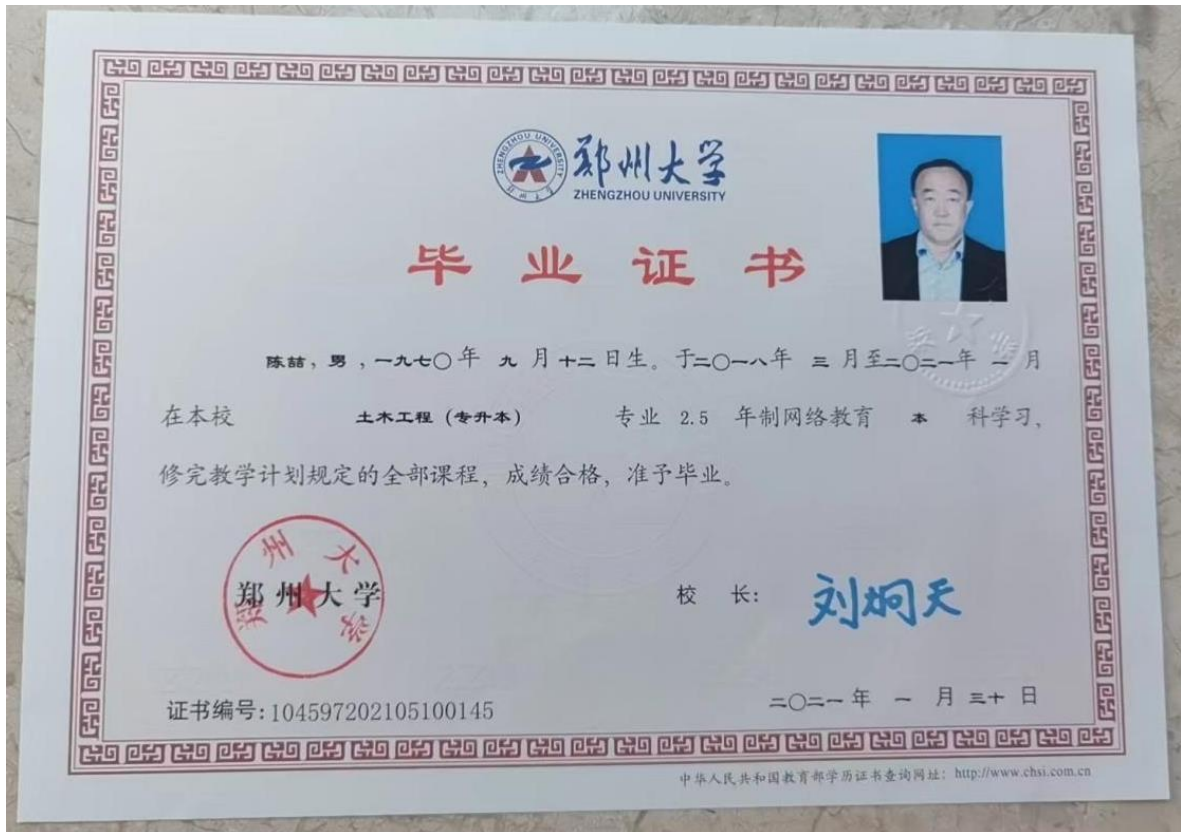 郑州大学
ZHENGZHOU UNIVERSITY
毕业证书
陈喆，男，一九七〇年 九 月十二日生。于二〇一八年 三 月至二〇二一年 一 月
在本校 土木工程（专升本） 专业 2.5 年制网络教育 本 科学习，
修完教学计划规定的全部课程，成绩合格，准予毕业。
郑州大学
郑州大学
校 长：
刘炯天
证书编号:104597202105100145
二〇二一年 一 月三十日
中华人民共和国教育部学历证书查询网址：http://www.chsi.com.cn